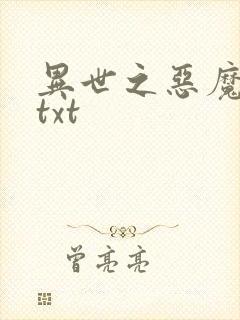 異世之惡魔
txt
曾亮亮